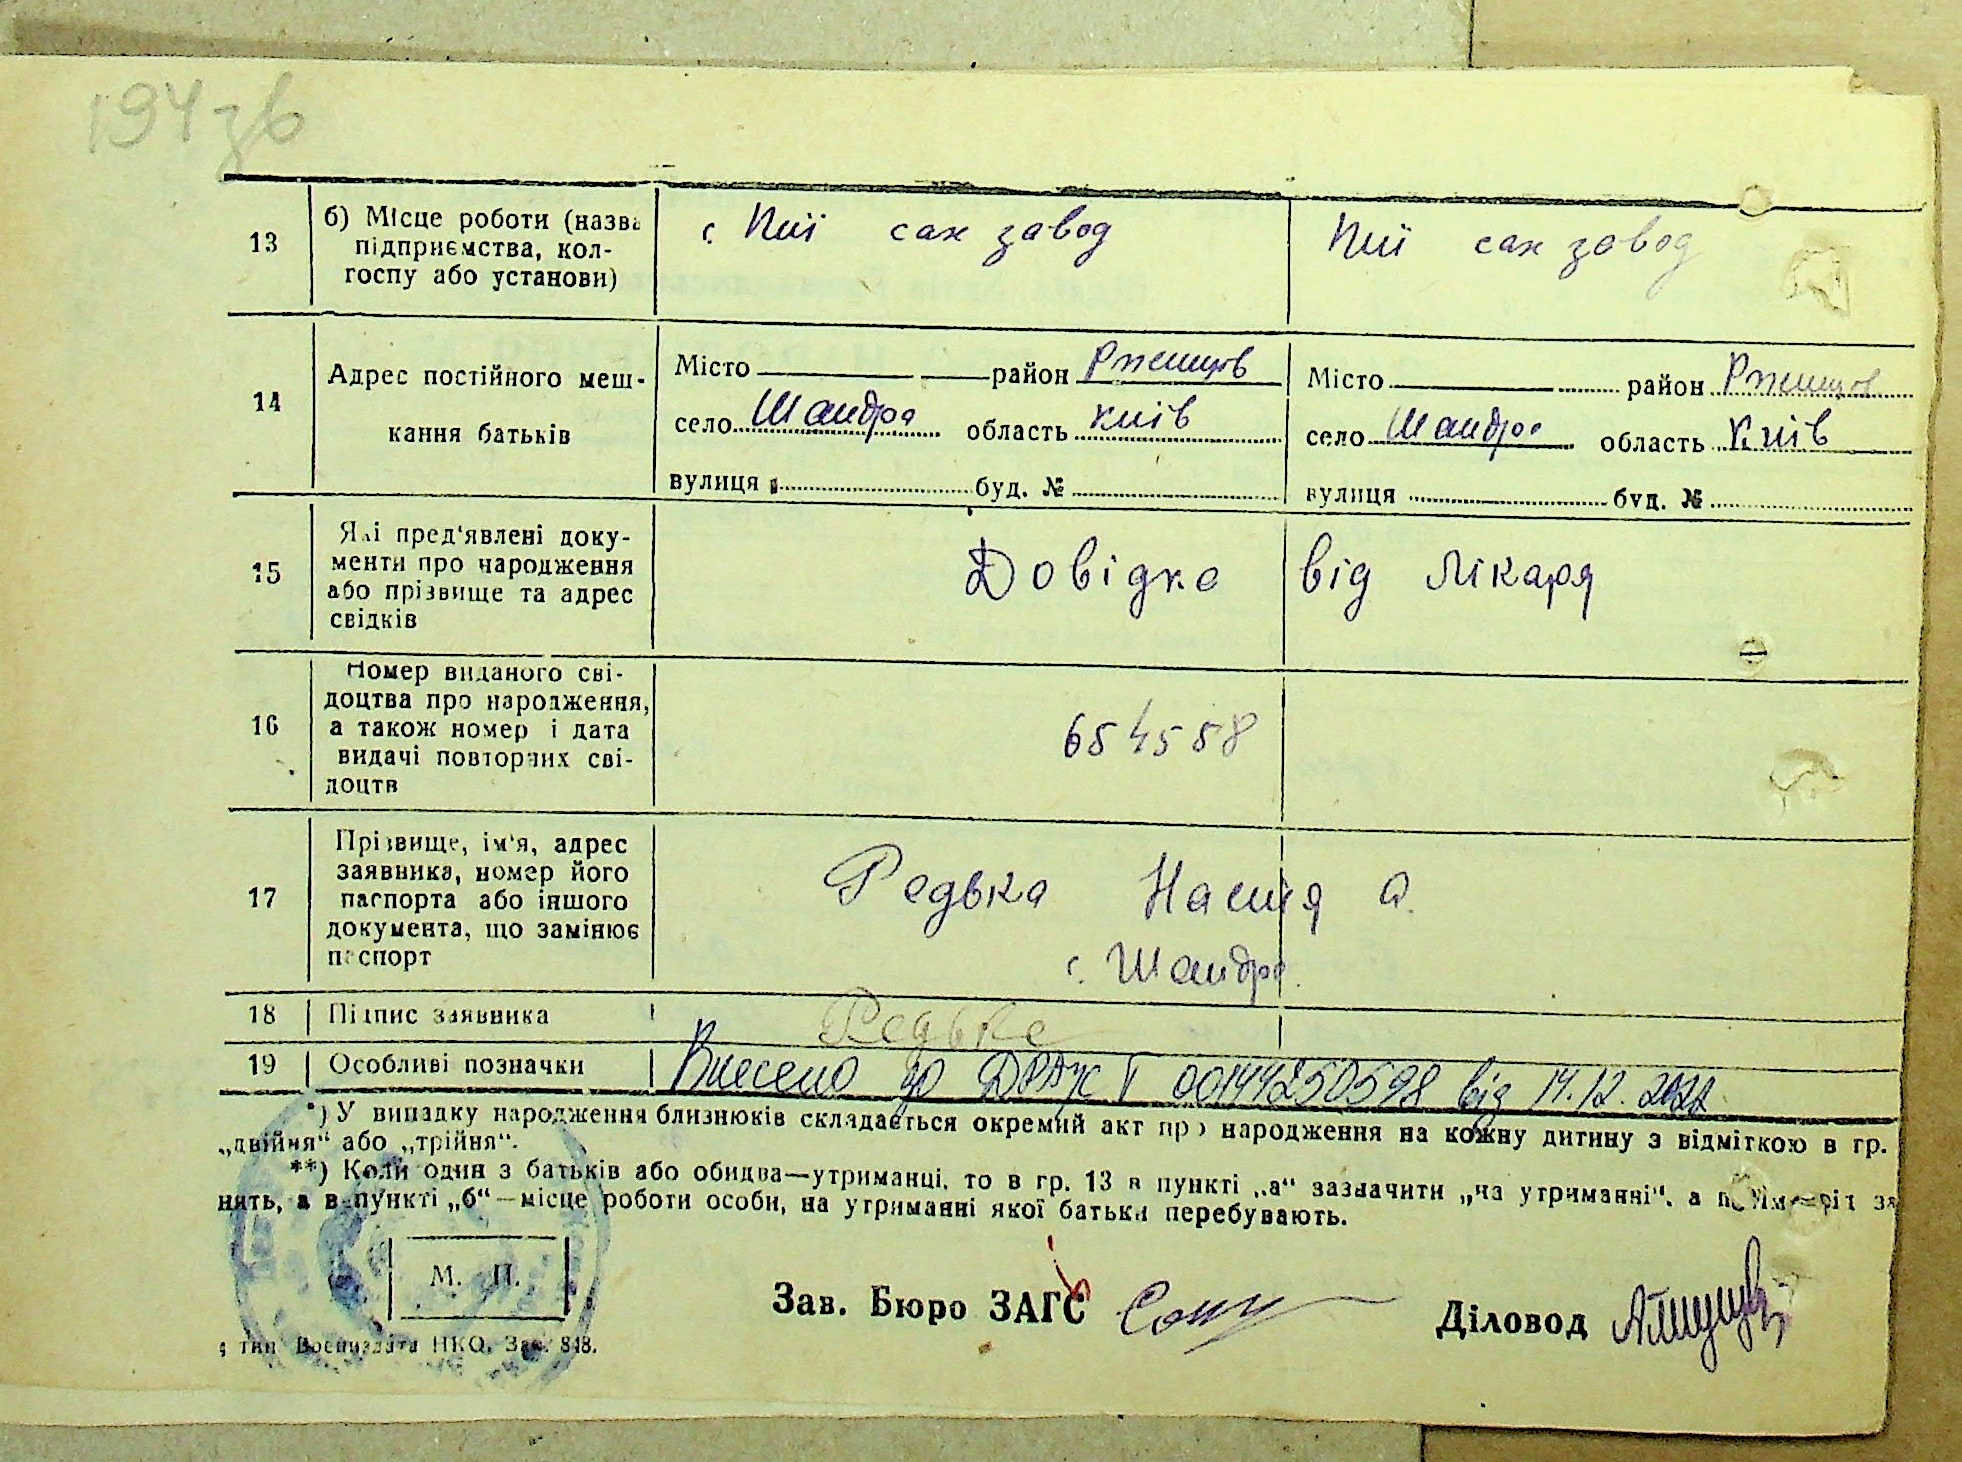 194 зв
13 б) Місце роботи (назва підприємства, колгоспу або установи)
с. Пії сах завод
Пії сах завод
14 Адрес постійного меш-
кання батьків
Місто район Ржищів
село Шандра область Київ
вулиця буд. №
Місто район Ржищів
село Шандра область Київ
вулиця буд. №
15 Які пред'явлені доку-
менти про народження
або прізвище та адрес
свідків
Довідка від лікаря
16 Номер виданого сві-
доцтва про народження,
а також номер і дата
видачі повторних сві-
доцтв
654558
17 Прізвище, ім'я, адрес
заявника, номер його
паспорта або іншого
документа, що замінює
паспорт
Редька Настя О.
с. Шандра.
18 Підпис заявника
Редька
19 Особливі позначки
Внесено до ДРАЦС 00144250598 від 14.12.2022
*) У випадку народження близнюків складається окремий акт про народження на кожну дитину з відміткою в гр.
„двійня“ або „трійня“.
**) Коли один з батьків або обидва—утриманці, то в гр. 13 в пункті „а“ зазначити „на утриманні“, а
нять, а в пункті „б“—місце роботи особи, на утриманні якої батьки перебувають.
М. П.
Зав. Бюро ЗАГС
Діловод
тип Воениздата НКО. Зак. 848.